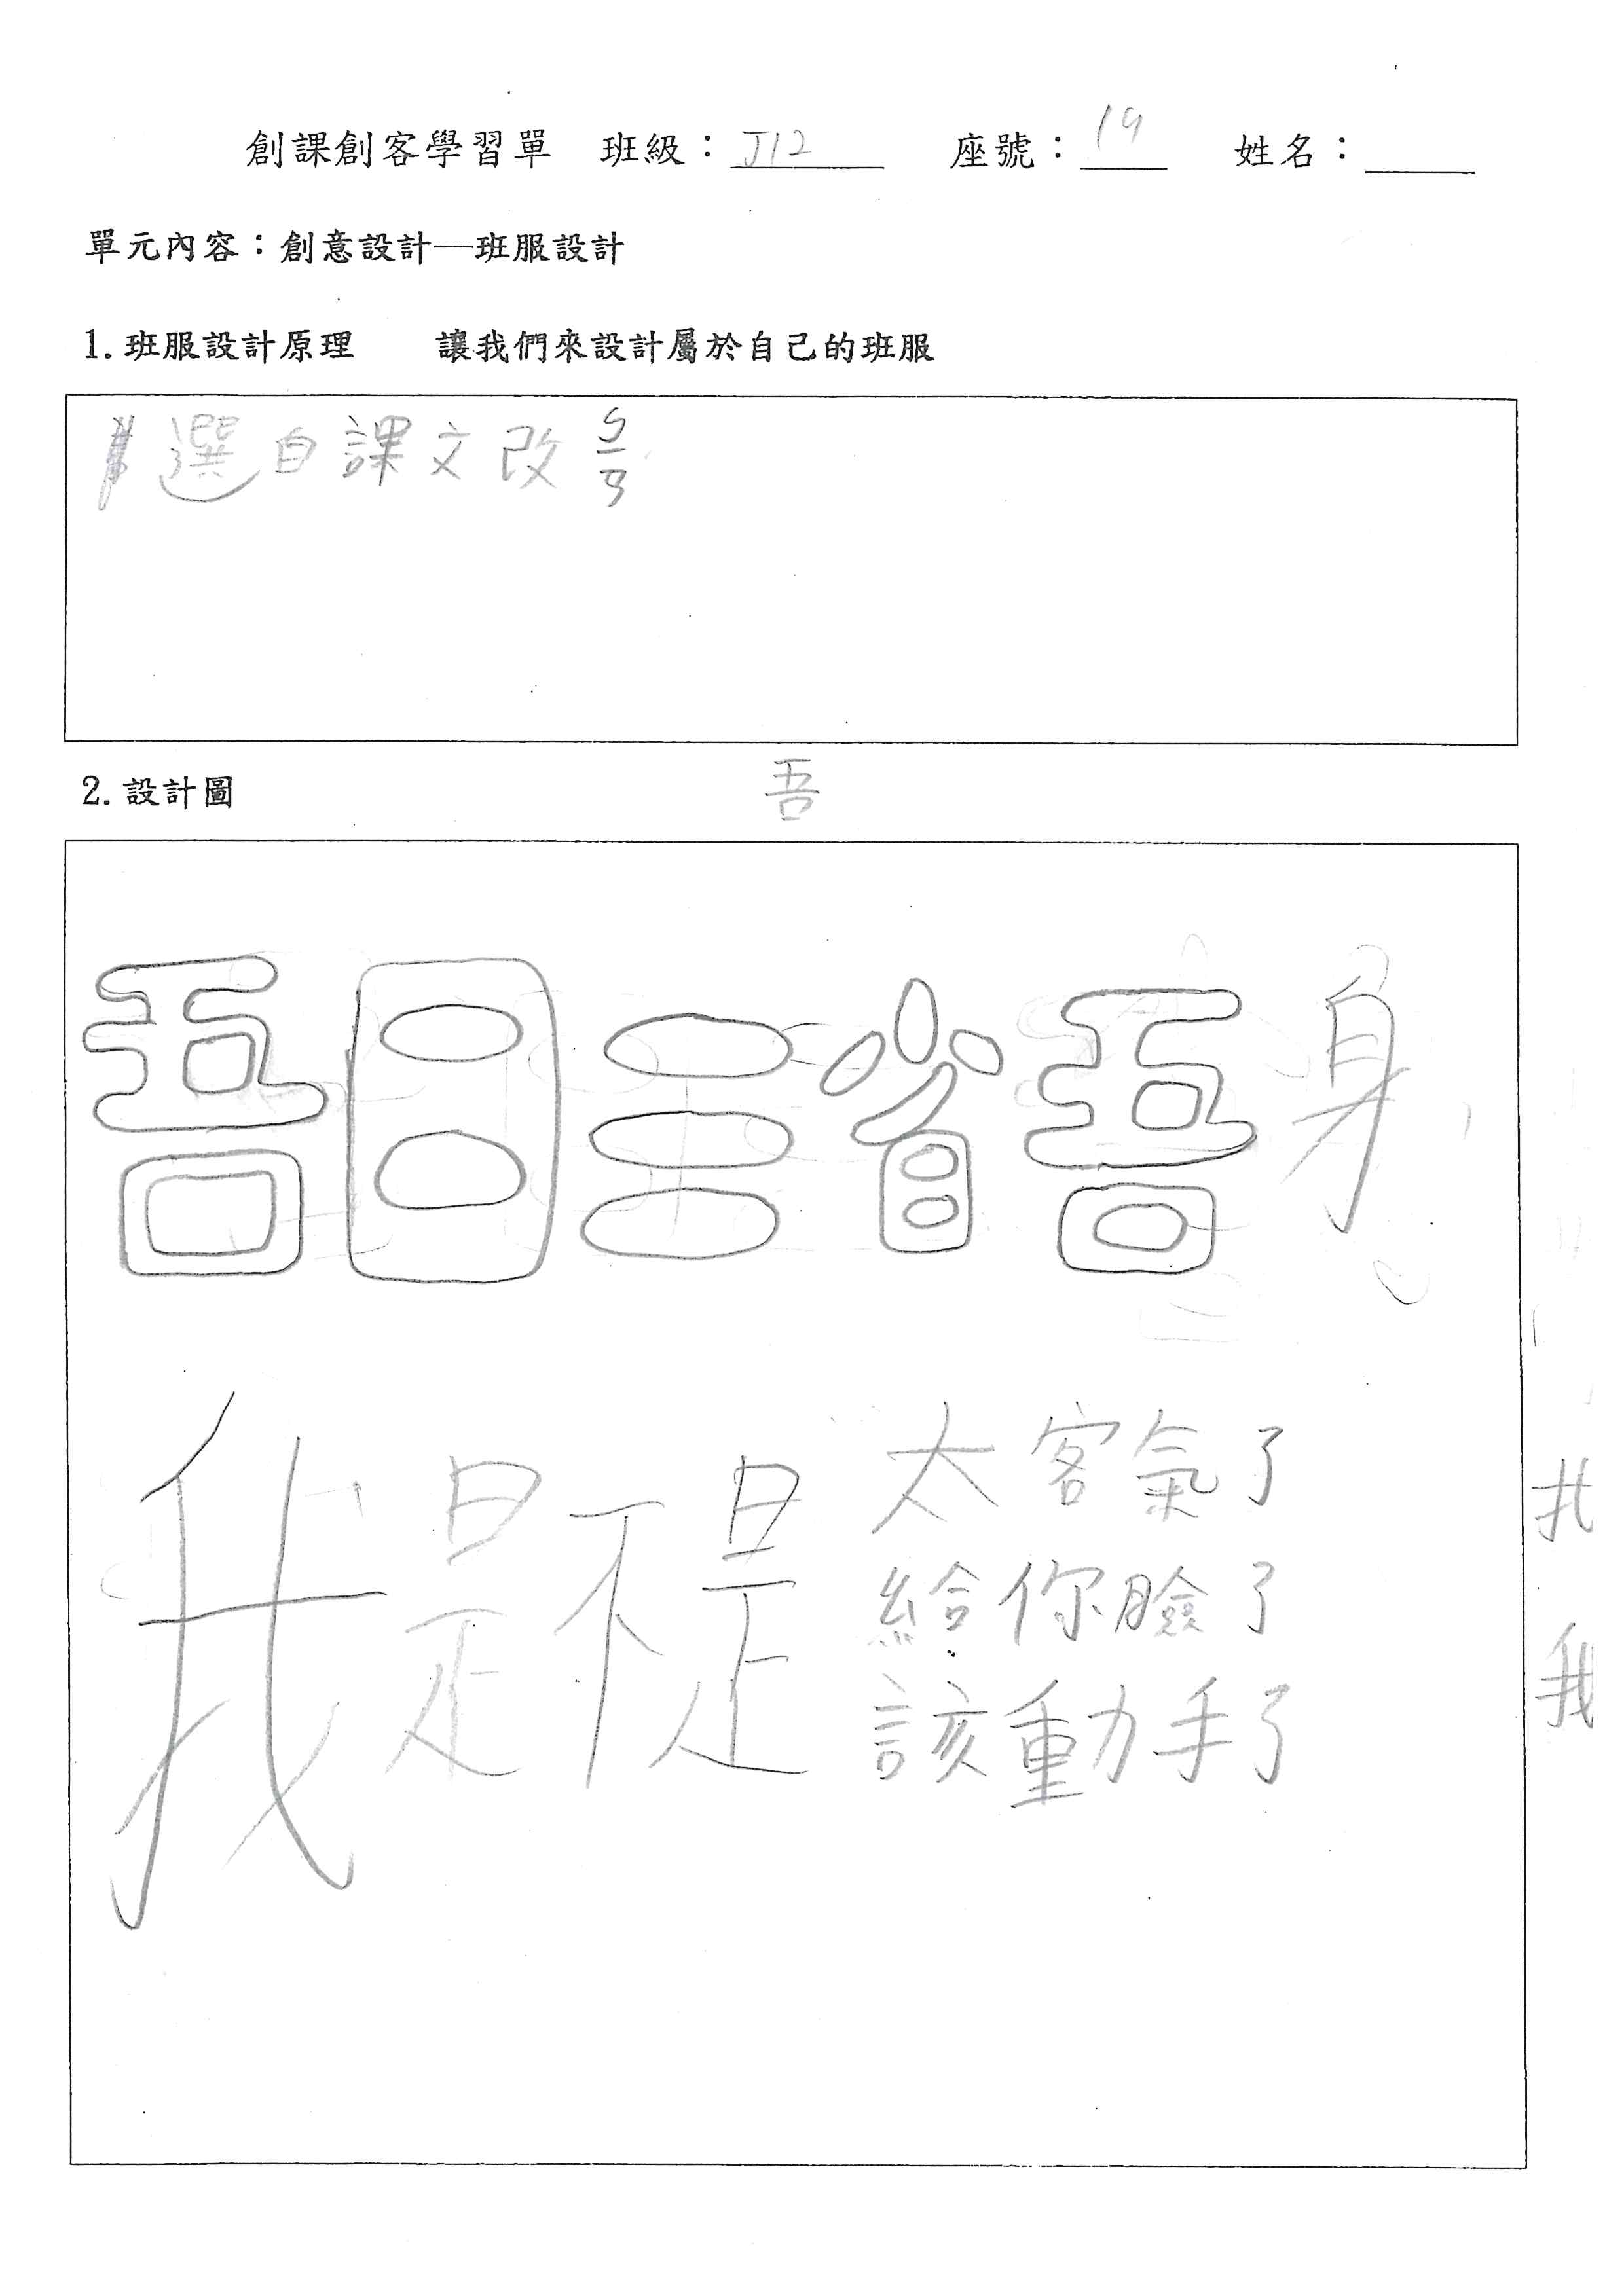 創課創客學習單 班級：J12 座號：19 姓名：
單元內容：創意設計—班服設計
1.班服設計原理 讓我們來設計屬於自己的班服
選自課文改ㄅㄧㄢ
2.設計圖
吾
吾日三省吾身
我是不是
太客氣了
給你臉了
該動手了
我